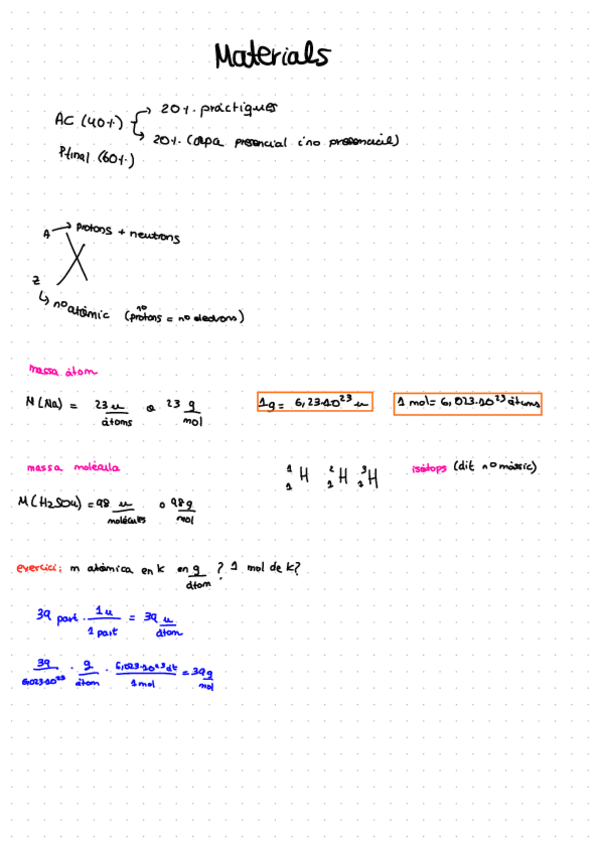 Materials
AC (40%) → 20%. pràctiques
→ 20%. (capa presencial i no presencial)
Pfinal (60%)
A → protons + neutrons
X
Z
↳ nº atòmic (nº protons = nº electrons)
massa àtom
M(Na) = 23 u/àtoms o 23 g/mol
1g = 6,23·10²³ u
1 mol = 6,023·10²³ àtoms
massa molècula
¹₁H ²₁H ³₁H
isòtops (dif nº màssic)
M(H2SO4) = 98 u/molècules o 98 g/mol
exercici: m atòmica en k en g/àtom? 1 mol de k?
39 part · 1u/1 part = 39 u/àtom
39/6,023·10²³ · g/àtom · 6,023·10²³ àt/1 mol = 39 g/mol